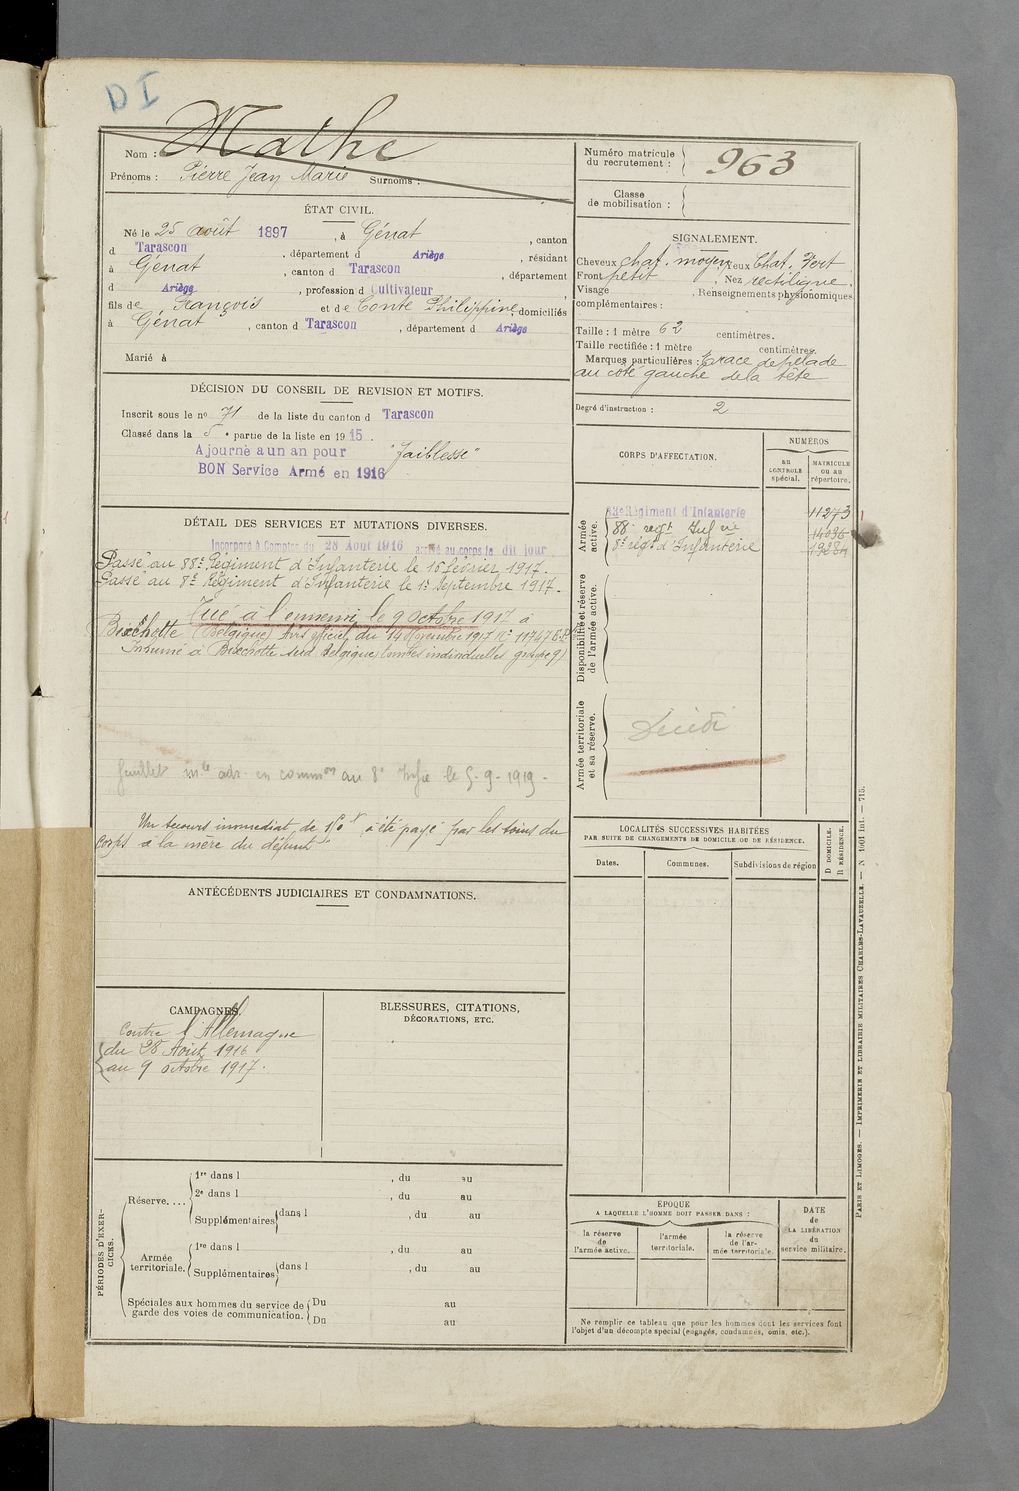 D I
Nom : Mathe
Prénoms : Pierre Jean Marie Surnoms :
Numéro matricule du recrutement : 963
Classe de mobilisation :
ÉTAT CIVIL.
Né le 25 août 1897, à Génat, canton
d Tarascon, département d Ariège, résidant
à Génat, canton d Tarascon, département
d Ariège, profession d Cultivateur
fils de François et de Conte Philippine, domiciliés
à Génat, canton d Tarascon, département d Ariège
Marié à
SIGNALEMENT.
Cheveux chat. moyen Yeux Chat. Vert
Front petit, Nez rectiligne.
Visage, Renseignements physionomiques
complémentaires :
Taille : 1 mètre 62 centimètres.
Taille rectifiée : 1 mètre centimètres.
Marques particulières : Trace de pelade
au côté gauche de la tête
Degré d'instruction : 2
DÉCISION DU CONSEIL DE REVISION ET MOTIFS.
Inscrit sous le no 71 de la liste du canton d Tarascon
Classé dans la 5e partie de la liste en 1915.
Ajourné à un an pour "faiblesse"
BON Service Armé en 1916
DÉTAIL DES SERVICES ET MUTATIONS DIVERSES.
Incorporé à Compter du 28 Aout 1916 arrivé au corps le dit jour
Passé au 88e Régiment d'Infanterie le 16 février 1917.
Passé au 8e Régiment d'Infanterie le 1er Septembre 1917.
Tué à l'ennemi le 9 octobre 1917 à
Bixchotte (Belgique) Avis officiel du 14 Novembre 1917 No 11747
Inhumé à Bixchotte Belgique tombes individuelles groupe 9)
feuillet mle adr. en common au 8e Infie le 5-9-1919-
Un secours immédiat de 150f a été payé par les soins du
Corps à la mère du défunt.
CORPS D'AFFECTATION.
NUMÉROS
au CONTROLE spécial.
MATRICULE OU AU répertoire.
Armée active.
Régiment d'Infanterie 11273
88e regt Infrie 14036
8e régt d'Infanterie
Disponibilité et réserve de l'armée active.
Armée territoriale et sa réserve.
Décédé
LOCALITÉS SUCCESSIVES HABITÉES
PAR SUITE DE CHANGEMENTS DE DOMICILE OU DE RÉSIDENCE.
Dates.
Communes.
Subdivisions de région
D DOMICILE.
R RÉSIDENCE.
ANTÉCÉDENTS JUDICIAIRES ET CONDAMNATIONS.
CAMPAGNES.
Contre l'Allemagne
du 28 Août 1916
au 9 octobre 1917.
BLESSURES, CITATIONS,
DÉCORATIONS, ETC.
PÉRIODES D'EXERCICES.
Réserve....
1re dans l , du au
2e dans l , du au
Supplémentaires dans l , du au
Armée territoriale.
1re dans l , du au
Supplémentaires dans l , du au
Spéciales aux hommes du service de garde des voies de communication.
Du au
Du au
ÉPOQUE
A LAQUELLE L'HOMME DOIT PASSER DANS :
la réserve de l'armée active.
l'armée territoriale.
la réserve de l'armée territoriale.
DATE de LA LIBÉRATION du service militaire.
Ne remplir ce tableau que pour les hommes dont les services font
l'objet d'un décompte spécial (engagés, condamnés, omis, etc.).
PARIS ET LIMOGES. — IMPRIMERIE ET LIBRAIRIE MILITAIRES CHARLES-LAVAUZELLE. — N 1001 int. — 715.